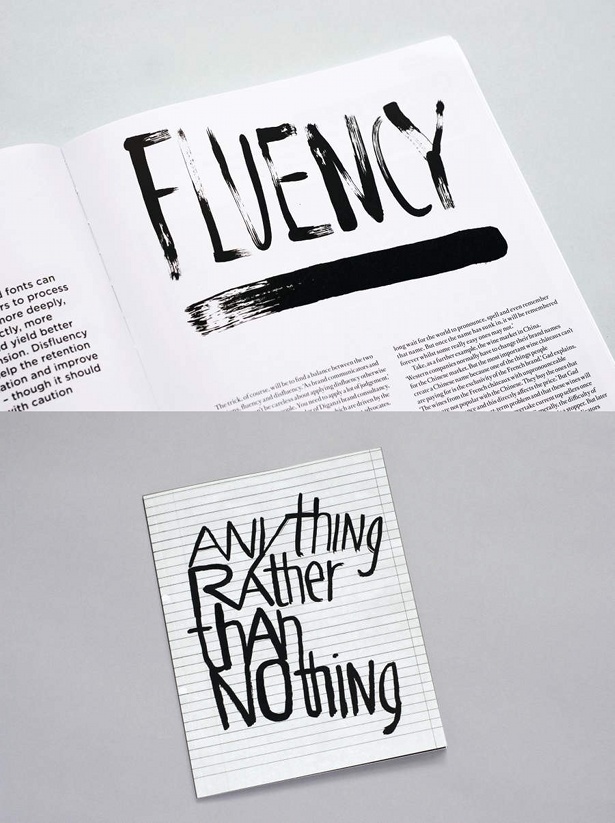 FLUENCY
fonts can
to process
more deeply,
more
yield better
Disfluency
the retention
and improve
– though it should
with caution
The trick, of course, will be to find a balance between the two
fluency and disfluency. 'As brand communicators and
can't be careless about applying disfluency otherwise
You need to apply a lot of judgement,'
brand consultancy,
which are driven by the
advocates.
long wait for the world to pronounce, spell and even remember
that name. But once the name has sunk in, it will be remembered
forever whilst some really easy ones may not.'
Take, as a further example, the wine market in China.
'Western companies normally have to change their brand names
for the Chinese market. But the most important wine châteaux can't
create a Chinese name because one of the things people
are paying for is the exclusivity of the French brand,' Gad explains.
'The wines from the French châteaux with unpronounceable
are not popular with the Chinese. They buy the ones that
and this directly affects the price. But Gad
term problem and that these wines will
current top sellers once
the difficulty of
a stopper. But later
ANything
RAther
thAn
NOthiNg